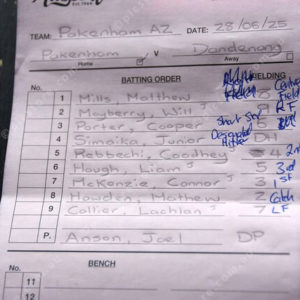 TEAM: Pakenham AZ DATE: 28/06/25
Pakenham V Dandenong
Home Away
No. BATTING ORDER FIELDING
1 Mills, Matthew Center Field
2 Mayberry, Will 9 RF
3 Porter, Cooper Short Stop 6
4 Simaika, Junior Designated Hitter DH
5 Rebbechi, Goodhey 4 2nd
6 Hough, Liam 5 3rd
7 McKenzie, Connor 3 1st
8 Howden, Mathew 2 Catch
9 Collier, Lachlan 7 LF
P. Anson, Joel DP
No. BENCH
11
12